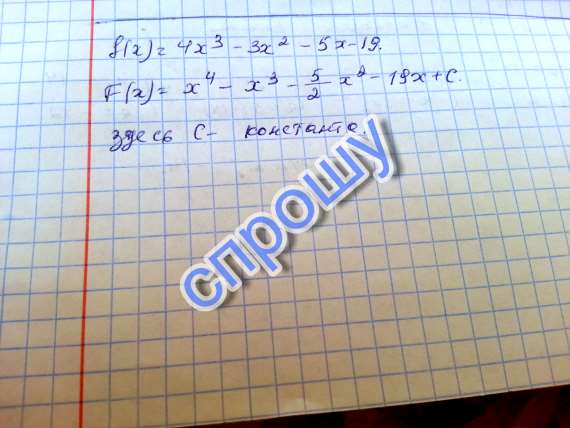 f(x) = 4x³ - 3x² - 5x - 19.
F(x) = x⁴ - x³ - 5/2 x² - 19x + C.
здесь С - константа.
спрошу